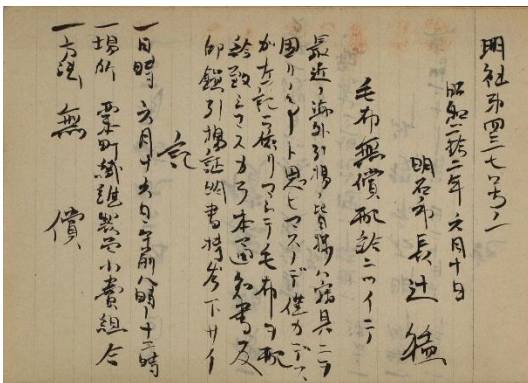 明社第四三七号ノ一
昭和二拾二年六月十日
明石市長 辻 猛
毛布無償配給ニツイテ
最近ノ海外引揚ノ皆様ハ寝具ニヲ
困リノ事ト思ヒマスノデ僅カデスガ
左記ニ依リマシテ毛布ヲ配
給致シマスカラ本通知書及
印鑑引揚証明書持参下サイ
記
一日時 六月十六日午前八時ー十二時
一場所 栗町繊維製品小賣組合
一方法 無償